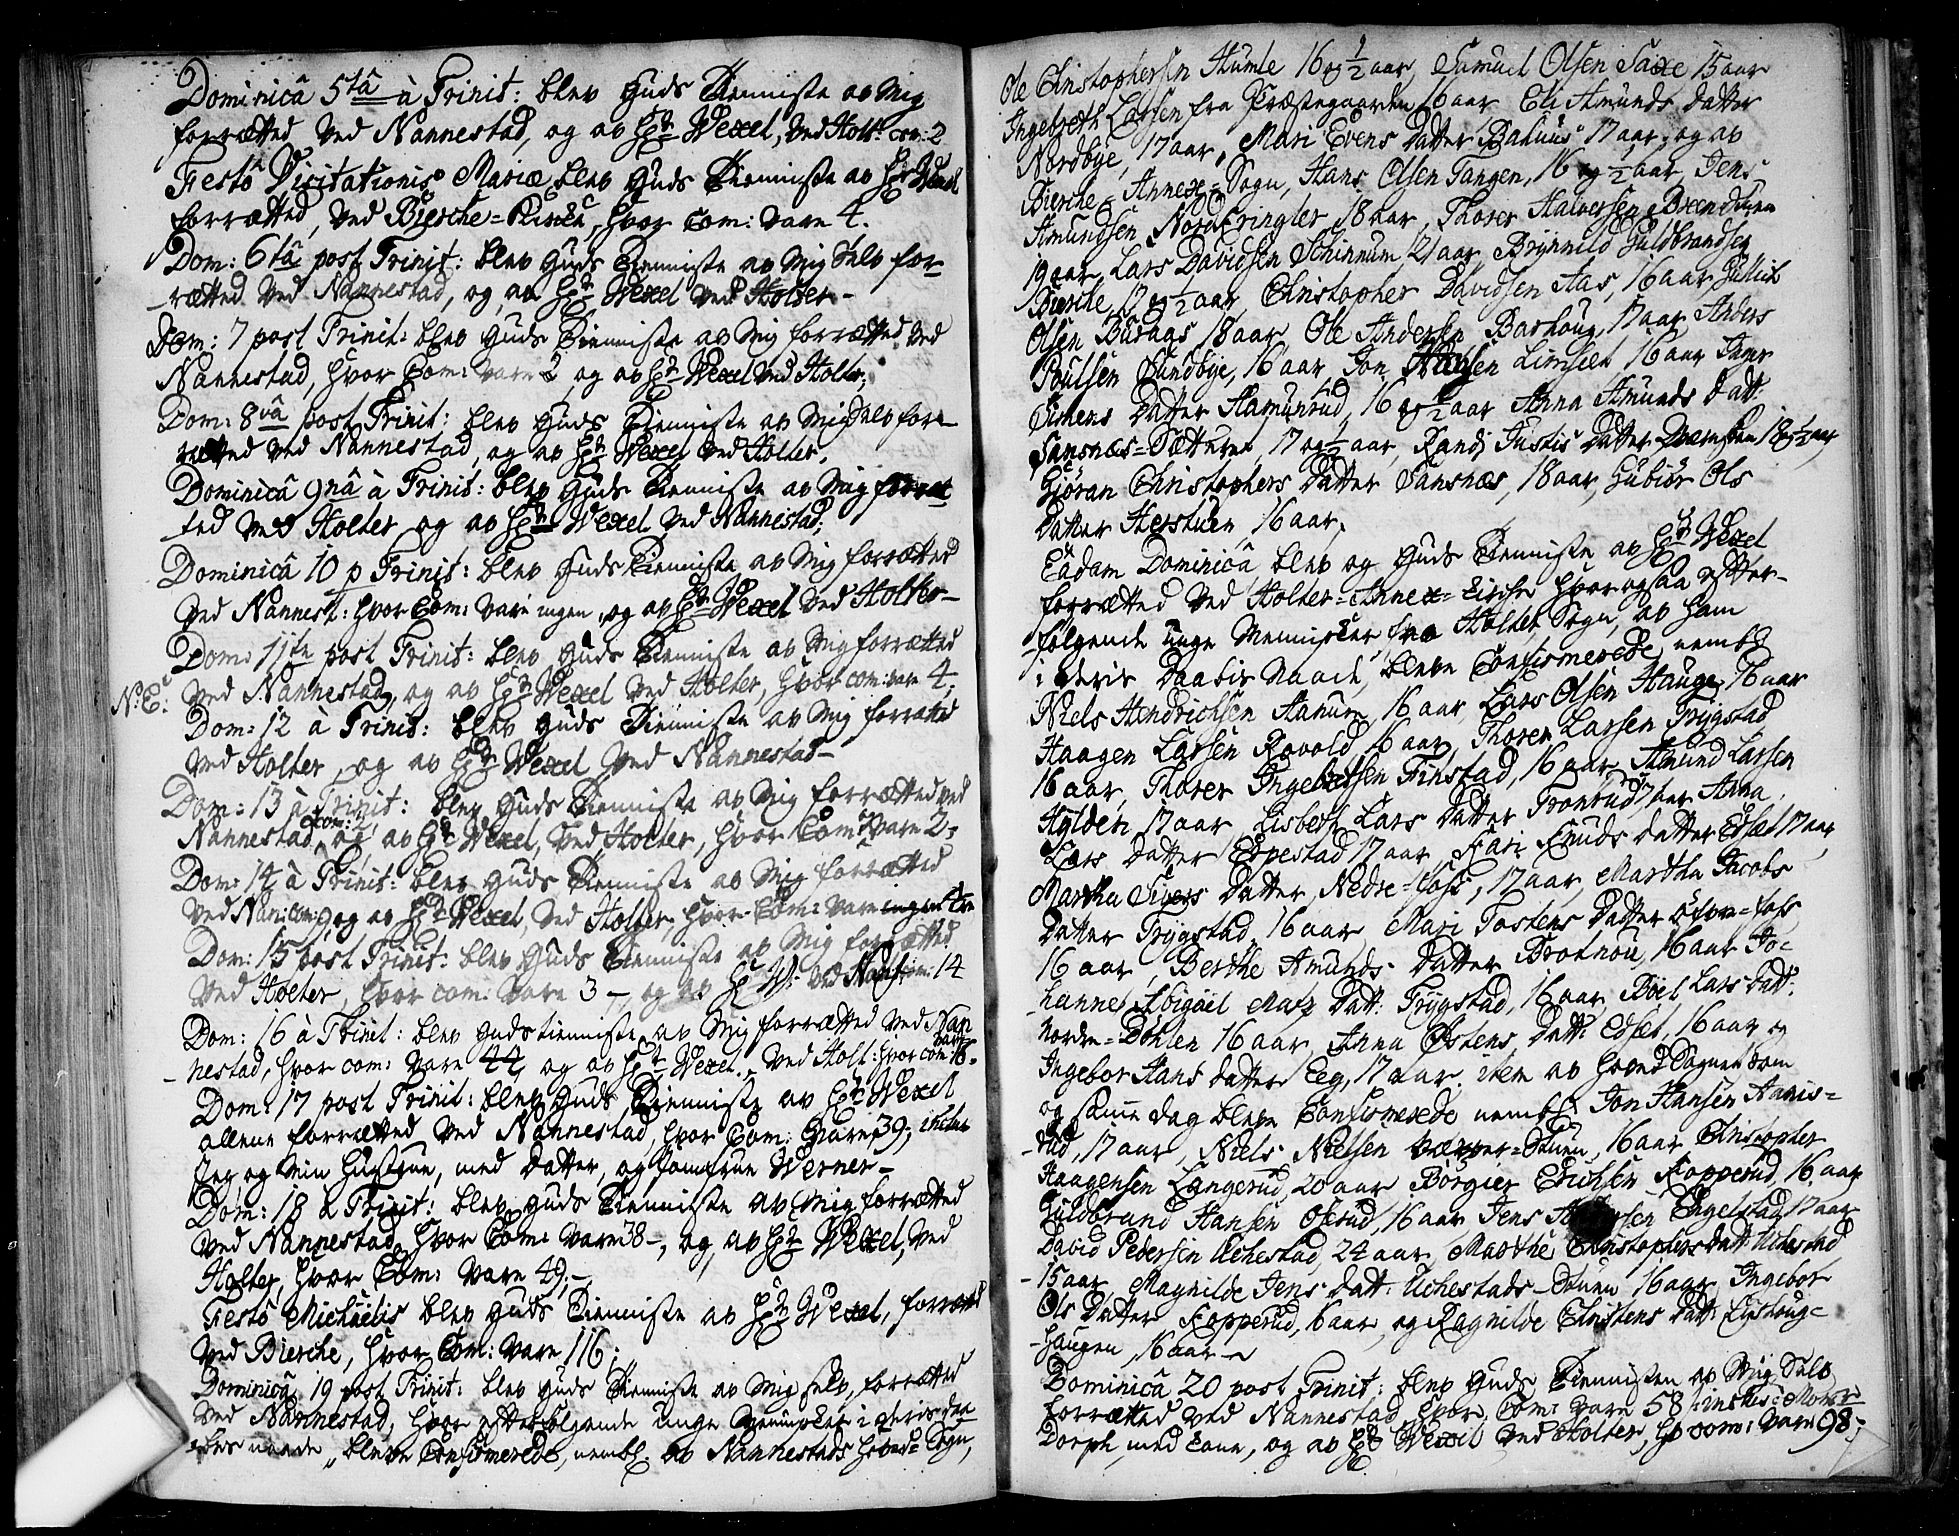 Dominicâ 5tâ à Trinit: blev Guds Tienniste av Mig
forrætted Ved Nannestad, og av Hr Wexel, Ved Holt: com: 2
Festô Visitationis Mariæ blev Guds Tienniste av Hr Wexel
forrætted, Ved Bierche=Kirche, hvor Com: vare 4.
Dom: 6tâ post Trinit: blev Guds Tienniste av Mig Selv for-
rætted Ved Nannestad, og av Hr Wexel Ved Holter-
Dom: 7 post Trinit: blev Guds Tienniste av Mig forrætted Ved
Nannestad, hvor Com: vare 2 og av Hr Wexel Ved Holter;
Dom: 8vâ post Trinit: blev Guds Tienniste av Mig Selv for-
rætted Ved Nannestad, og av Hr Wexel Ved Holter.
Dominicâ 9nâ à Trinit: blev Guds Tienniste av Mig forræt
ted Ved Holter og av Hr Wexel Ved Nannestad;
Dominicâ 10 p Trinit: blev Guds Tienniste av Mig forrætted
Ved Nannest: hvor Com: vare ingen, og av Hr Wexel Ved Holter-
Dom: 11te post Trinit: blev Guds Tienniste av Mig forrætted
N:E: Ved Nannestad, og av Hr Wexel Ved Holter, hvor com: vare 4;
Dom: 12 à Trinit: blev Guds Tienniste av Mig forrætted
Ved Holter, og av Hr Wexel Ved Nannestad-
Dom: 13 à Trinit: blev Guds Tienniste av Mig forrætted ved
Nannestad, og av Hr Wexel, Ved Holter, hvor Com: vare 2;
Dom: 14 à Trinit: blev Guds Tienniste av Mig forrætted
Ved Nan: com: 9, og av Hr Wexel, Ved Holter, hvor Com: vare ingen
Dom: 15 post Trinit: blev Guds Tienniste av Mig forrætted
Ved Holter, hvor com: vare 3-, og av Hr W: Ved Nanst: com: 14
Dom: 16 à Trinit: blev Guds tienniste av Mig forrætted Ved Nan
nestad, hvor com: vare 44 og av Hr Wexel, Ved Holt: hvor com: vare 16.
Dom: 17 post Trinit: blev Guds Tienniste av Hr Wexel
allene forrætted Ved Nannestad, hvor Com: vare 39;
Jeg og Min Hustrue, med Datter, og Jomfrue Werner-
Dom: 18 à Trinit: blev Guds Tienniste av Mig forrætted
Ved Nannestad, hvor Com: vare 38-, og, av Hr Wexel, Ved
Holter, hvor Com: Vare 49;-
Festô Michaëlis blev Guds Tienniste av Hr Wexel, forrætted
Ved Bierche, hvor Com: vare 116;
Dominicâ 19 post Trinit: blev Guds Tienniste av Mig selv, forrætted
Ved Nannestad, hvor efterfølgende unge Mennisker i deris daa
bes naade, bleve Confirmerede, nembl. av Nannestads Hoved=Sogn,
Ole Christophersen Humle 16 og 1/2 aar, Samuel Olsen Saxe 15 aar
Ingebreth Larsen fra Præstegaarden 16 aar Eli Amunds Datter
Nordbye, 17 aar, Mari Evens Datter 17 aar, og av
Bierche=Annex=Sogn, Hans Olsen Tangen, 16 og 1/2 aar, Jens
Amundsen Nordkringler 18 aar, Thorer Halversen
19 aar, Lars Davidsen Schinnum 21 aar Brynnild Guldbrandsen
Bierche, 17 og 1/2 aar, Christopher Davidsen Aas, 16 aar Gullich
Olsen 18 aar, Ole Andersen Barhoug, 17 aar Anders
Poulsen Sundbye, 16 aar, Jon Hansen 16 aar
Simens Datter Hamunrud, 16 og 1/2 aar Anna Amunds Datt:
Sansnæs= 17 og 1/2 aar, Randi Justis Datter 18 og 1/2 aar
Gjøran Christophers Datter Sansnæs, 18 aar, Gubiør Ols
Datter Herstuen, 16 aar,
Eâdam Dominicâ blev og Guds Tienniste av Hr Wexel
forrætted Ved Holter=Annex=Kirche hvor ogsaa efter-
følgende unge Mennisker fra Holter Sogn, av ham
i deris Daabis Naade, bleve Confirmerede, nembl:
Niels Hendrichsen Hanum 16 aar, Lars Olsen Hauge, 16 aar
Haagen Larsen Rovold, 16 aar, Thorer Larsen Trygstad
16 aar, Thorer Ingebretsen Finstad, 16 aar, Amund Larsen
Hylden, 17 aar, Lisbeth Lars Datter Tronrud 17 aar Anna
Lars Datter Eppestad 17 aar, Kari Knuds Datter Edset 17 aar
Martha Sivers Datter Nedre=foss, 17 aar, Martha Jacobs
Datter Trygstad, 16 aar, Mari Tostens Datter øfre=foss
16 aar, Berthe Amunds Datter Brotnou, 16 aar Jo-
hanne Abigael Matz Datt: Trygstad, 16 aar, Boel Lars Datt:
Nordre=Døhlen 16 aar, Anna Østens Datt: Edset, 16 aar og
Ingebor Hans Datter Eeg, 17 aar. item av Hoved Sognet Som
og samme dag bleve Confirmerede nembl. Jon Hansen Harris=
rud, 17 aar, Niels Nielsen 16 aar Christopher
Haagensen Langerud, 20 aar Børgier Erichsen Kopperud, 16 aar
Guldbrand Hansen Oserud, 16 aar Jens Engelstad 17 aar
David Pedersen Uchestad, 24 aar, Marthe Christophersdatt: Uchestad
-15 aar, Magnilde Jens datt: Uchestads-Stuen 16 aar Ingebor
Ols Datter Kopperud, 16 aar, og Ragnilde Christens Datt:
-haugen, 16 aar-
Dominicâ 20 post Trinit: blev Guds Tiennisten av Mig Selv
forrætted Ved Nannestad, hvor Com: vare 58
Dorph, med Kone, og av Hr Wexel Ved Holter, hv com: vare 98;